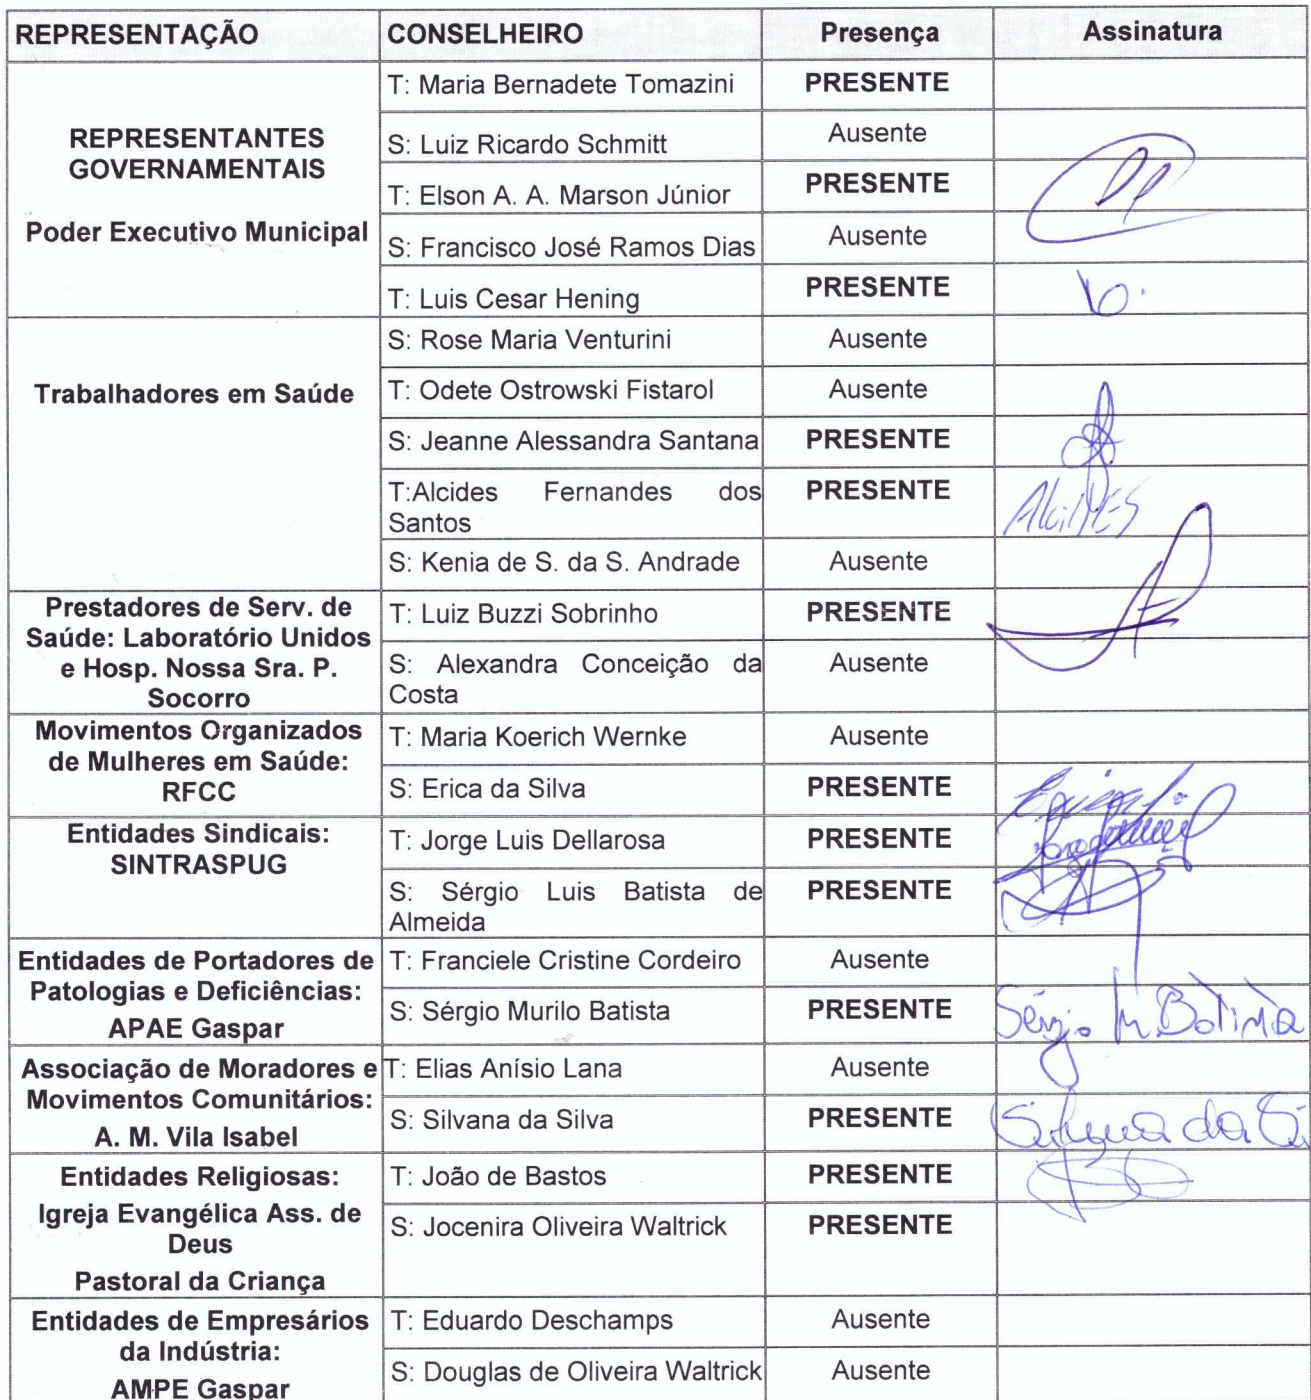 REPRESENTAÇÃO CONSELHEIRO Presença Assinatura
REPRESENTANTES
GOVERNAMENTAIS
Poder Executivo Municipal
T: Maria Bernadete Tomazini PRESENTE
S: Luiz Ricardo Schmitt Ausente
T: Elson A. A. Marson Júnior PRESENTE
S: Francisco José Ramos Dias Ausente
T: Luis Cesar Hening PRESENTE
Trabalhadores em Saúde
S: Rose Maria Venturini Ausente
T: Odete Ostrowski Fistarol Ausente
S: Jeanne Alessandra Santana PRESENTE
T:Alcides Fernandes dos
Santos
PRESENTE Alcides
S: Kenia de S. da S. Andrade Ausente
Prestadores de Serv. de
Saúde: Laboratório Unidos
e Hosp. Nossa Sra. P.
Socorro
T: Luiz Buzzi Sobrinho PRESENTE
S: Alexandra Conceição da
Costa
Ausente
Movimentos Organizados
de Mulheres em Saúde:
RFCC
T: Maria Koerich Wernke Ausente
S: Erica da Silva PRESENTE
Entidades Sindicais:
SINTRASPUG
T: Jorge Luis Dellarosa PRESENTE
S: Sérgio Luis Batista de
Almeida
PRESENTE
Entidades de Portadores de
Patologias e Deficiências:
APAE Gaspar
T: Franciele Cristine Cordeiro Ausente
S: Sérgio Murilo Batista PRESENTE Sérgio M. Batista
Associação de Moradores e
Movimentos Comunitários:
A. M. Vila Isabel
T: Elias Anísio Lana Ausente
S: Silvana da Silva PRESENTE Silvana da Si
Entidades Religiosas:
Igreja Evangélica Ass. de
Deus
Pastoral da Criança
T: João de Bastos PRESENTE
S: Jocenira Oliveira Waltrick PRESENTE
Entidades de Empresários
da Indústria:
AMPE Gaspar
T: Eduardo Deschamps Ausente
S: Douglas de Oliveira Waltrick Ausente